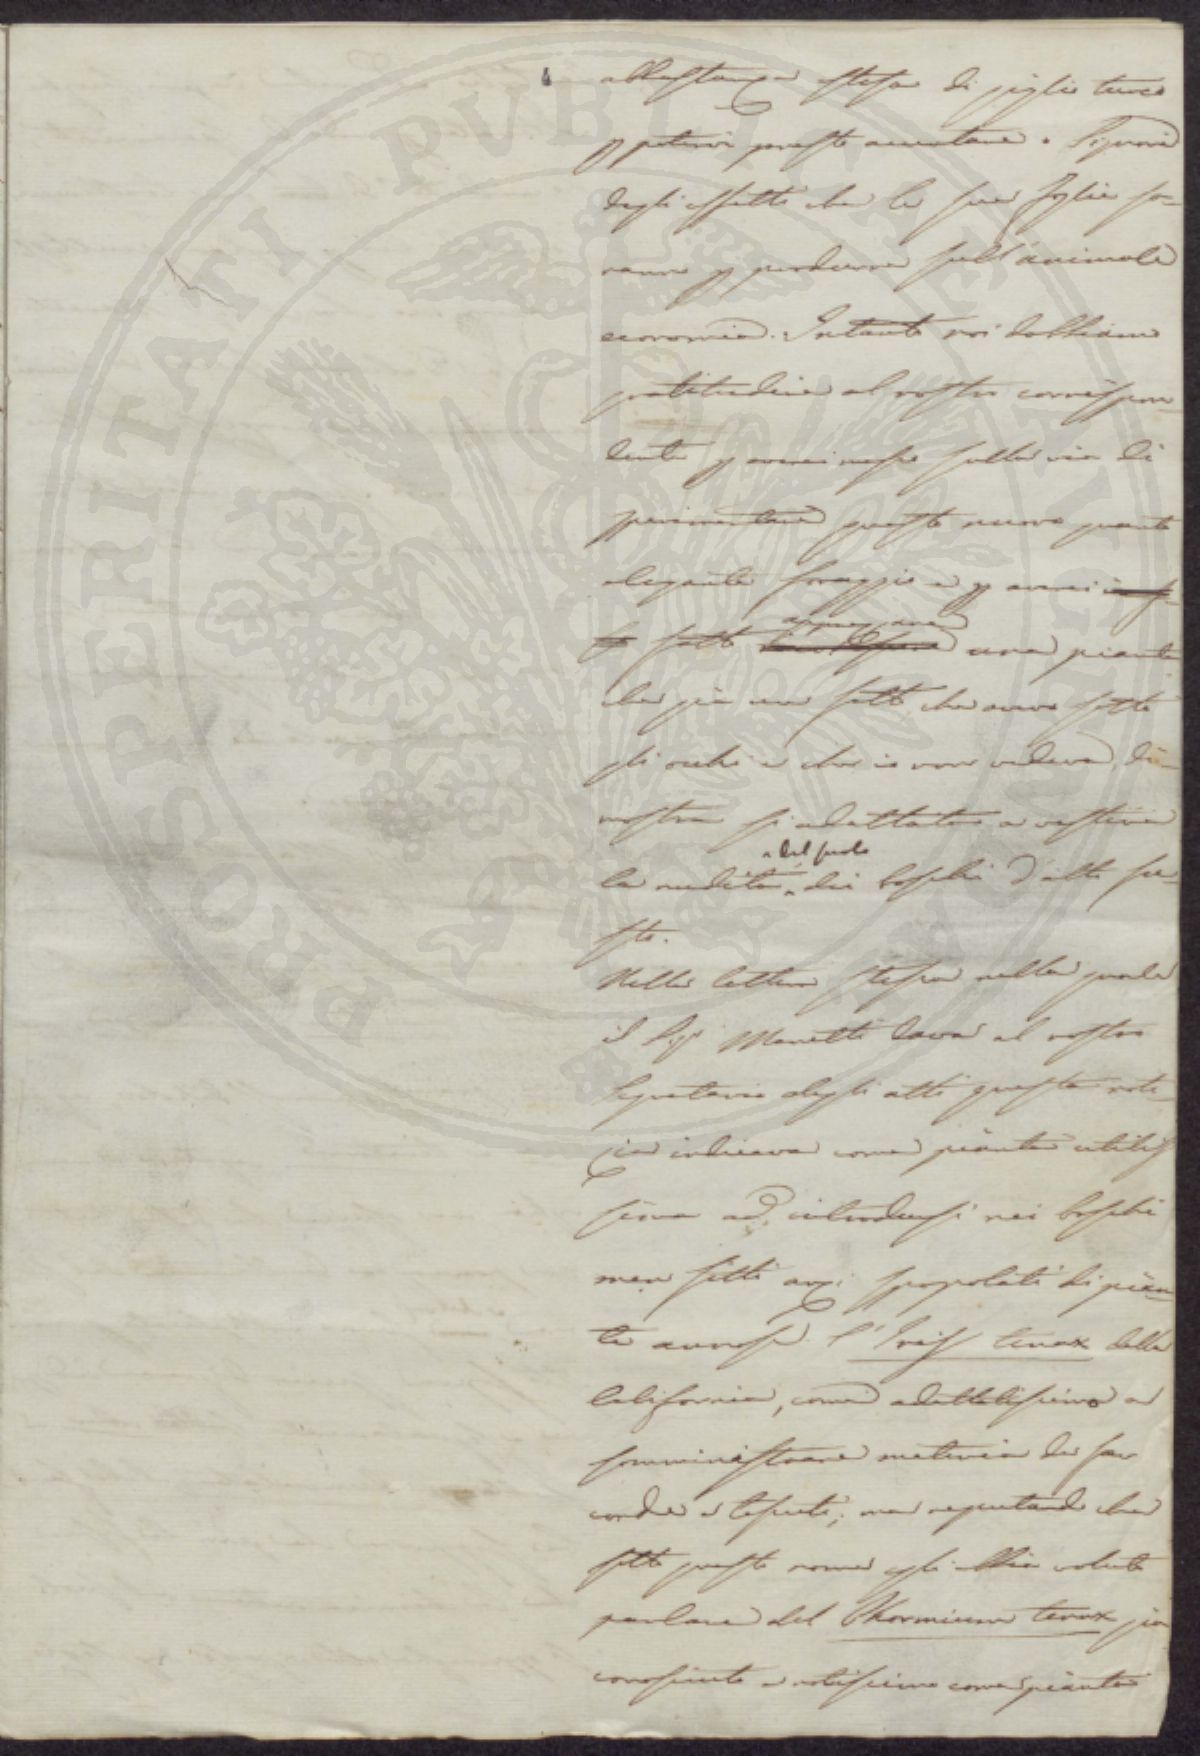 PROSPERITATI PUBLICAE AUGENDAE
abbastanza stesa di giglio turco
p potervi queste accertare. Ignoro
degli effetti che le sue foglie so-
ranno p produrre sull'animale
economia. Intanto noi dobbiamo
gratitudine al nostro corrispon-
dente p averci messo sulla via di
sperimentare questo nuovo quanto
elegante foraggio e p averci
fatto apprezzare una pianta
che più me sotto che aveva sotto
gli occhi e che io non vedeva, di-
mostra sì adattata a vestire
la nudità del suolo dei boschi d'alto fu-
sto.
Nella lettera stessa nella quale
il Sigr Manetti dava al nostro
Segretario degli atti questa noti-
zia indicava come pianta utilis
sima ad introdursi nei boschi
men fitti anzi spopolati di pian-
te annose l'Iris tenax della
California, come adattatissimo a
somministrare materia da far
corde e tessuti; ma reputando che
sotto questo nome egli abbia voluto
parlare del Phormium tenax già
conosciuto e notissimo come pianta